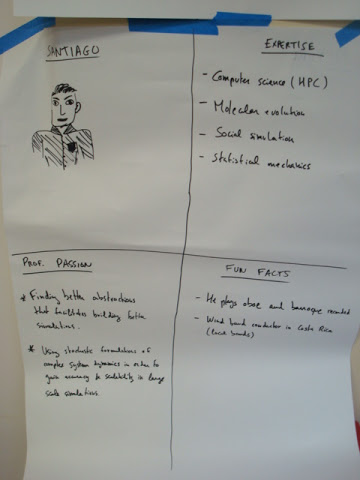 SANTIAGO
EXPERTISE
- Computer science (HPC)
- Molecular evolution
- Social simulation
- Statistical mechanics
PROF. PASSION
* Finding better abstractions
that facilitates building better
simulations.
* Using stochastic formulations of
complex system dynamics in order to
gain accuracy & scalability in large
scale simulations
FUN FACTS
- He plays oboe and baroque recorder
- Wind band conductor in Costa Rica
(local bands)